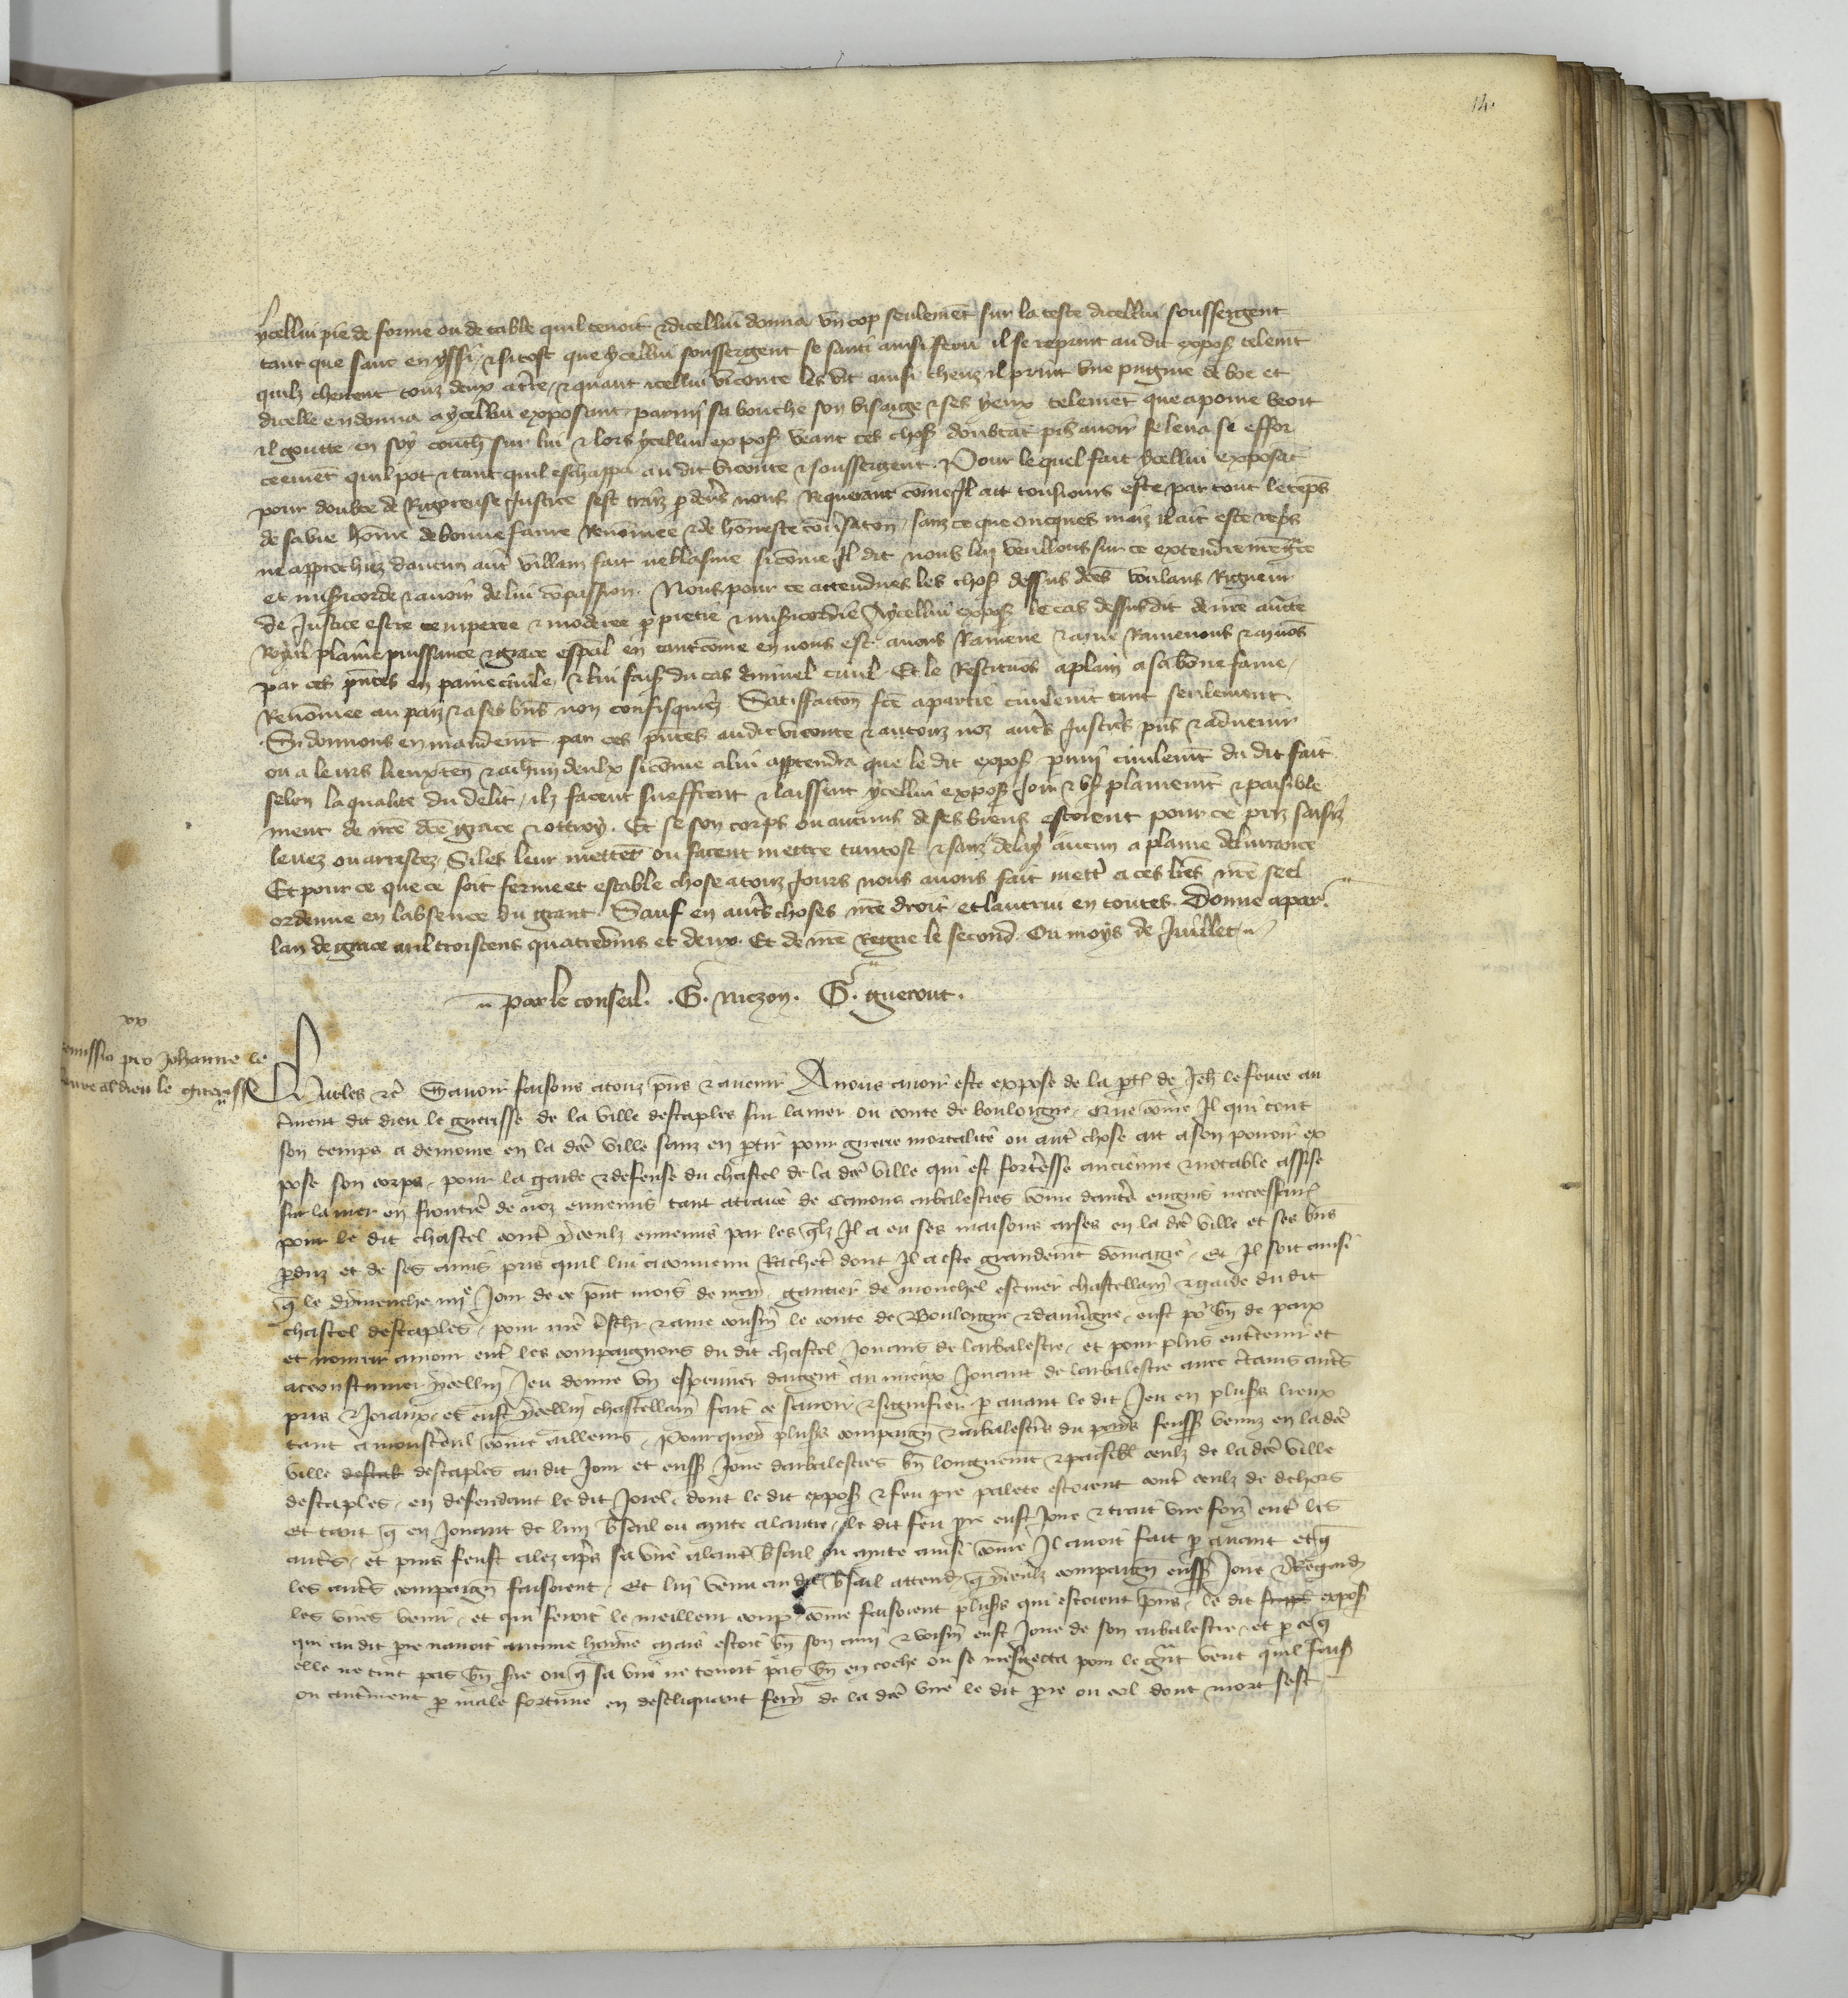 14.
ycellui pie de forme ou de table quil tenoit & dicellui donna un cop seulemēt sur la teste dicellui soussergent
tant que sanc en yssi / & si tost que ycellui soussergent se senti ainsi feru il se reprint au dit expos telemt
quilz cheirent touz deux a tr̄re / & quant icellui viconte les vit ainsi cheuz il print une pugnie de boe et
dicelle en donna a ycellui exposant parmi sa bouche son visaige & ses yeux telemēt que a poine veoit
il goutte en soy couch sur lui & lors ycellui expos veant ces chos doubtāt pis avoir se leva si effor
ceemēt quil pot & tant quil eschappa au dit viconte & soussergent. Pour lequel fait ycellui exposāt
pour doubte de Rigoreuse Justice sest traiz p devs nous Requerant cōme Il ait tousiours este par tout le tēps
de sa vie hōme de bonne fame Renōmee & de honneste cōvsaton / sanz ce que oncques maiz il ait este repns
ne approchiez daucun autr villain fait ne blasme si cōme Il dit nous lui veullons sur ce extendre nre grace
et misericorde & avoir de lui cōpassion. Nous pour ce attendues les chos dessus dces voulans Rigueur
de Justice estre temperee & moderee p pietie & misericorde A ycellui expos le cas dessus dit de nre aucte
Royal plaine puissance & grace espal en tant cōme en nous est avons Ramene & Ramenons
par ces pntes en paine civile / & lui fais du cas criminel civil. Et le Restituōs a plain a sa bōne fame /
Renōmee au paiz & a ses bns non confisquiez. Satisfaiton fce a partie civilemt tant seulement.
Si donnons en mandemt par ces pntes au dit viconte & a touz noz autrs Justicrs pns & advenir
ou a leurs lieuxten & a chun deulx si cōme a lui apptendra que le dit expos pugni civilemt du dit fait
selon la qualite du delit / ilz facent sueffrent & laissent ycellui expos Joir & us plainemt & paisible
ment de nre dce grace & ottroy. Et se son corps ou aucuns de ses biens estoient pour ce priz saisiz
levez ou arrestez Si les leur mettēt ou facent mettre tantost & sanz delay aucun a plaine delivrance
Et pour ce que ce soit ferme et estable chose a touz Jours nous avons fait mettr a ces lres nre seel
ordenne en labsence du grant. Sauf en autrs choses nre droit et lautrui en toutes. Donne a par.
lan de grace mil troiscens quatrevins et deux. Et de nre Regne le second. Ou moys de Juillet
par le conseil. .G. niczon. G. guerout.
xv
Remissio pro Johanne le
fevre al dieu le guerisse
Karles &c Savoir faisons a touz pns & avenir A nous avoir este expose de la ptie de Jeh le fevre au
trment dit dieu le guerisse de la ville destaples sur la mer ou conte de bouloigne. Que cōme Il qui tout
son temps a demoure en la dce ville sanz en ptir pour guerre mortalite ou autr chose ait a son povoir ex
pose son corps pour la garde & defense du chastel de la dce ville qui est fortresse ancienne & notable assise
sur la mer en frontrie de noz ennemis tant a traire de canons arbalestres cōme dautrs engins necessair
pour le dit chastel contr yceulz ennemis par les qlz Il a eu ses maisons arses en la dce ville et ses bns
pduz et de ses amis pris quil lui a convenu Rachetr dont Il a este grandemt dommagie. Et Il soit ainsi
q̄ le dimenche iiije Jour de ce pnt mois de may, gautier de monchel escuier chastellain & garde du dit
chastel destaples, pour nre trschr & ame cousin le conte de Bouloigne & dauvrgne eust po bn de paix
et nourir amour entr les compaignons du dit chastel Jouans de larbalestre, et pour plus entretenir et
acoustumer ycellui Jeu donne un esprevier dargent au mieux Jouant de larbalestre avec crtains autrs
pris & Joiaux, et eust ycellui chastellain fait ce savoir & signifier p avant le dit Jeu en plus's lieux
tant a monstreul cōme ailleurs, Pour quoy plus's compaign & arbalestrs du paiis feuss venuz en la dce
ville destaples au dit Jour et euss Joue darbalestres bn longuemt & paisibl ceulz de la dce ville
destaples, en defendant le dit Joiel, dont le dit expos & feu pre palete estoient contr ceulz de dehors
Et tant q̄ en Jouant de lun bsail ou mute a lautre, le dit feu pre eust Joue & trait une foiz entr les
autrs, et puis feust alez aprs sa vire a lautr bsail ou mute ainsi cōme Il avoit fait p avant et q̄
les autrs compaign faisoient, Et lui venu au dit bsail attend q̄ yceulz compaign euss Joue & Regard
les vires venir, et qui feroit le meilleur coup cōme faisoient plus's qui estoient pns, le dit expos
qui au dit pre navoit aucune hayne mais estoit bn son ami & voisin eust Joue de son arbalestre, et p ce q̄
elle ne tint pas bn fre ou q̄ sa vire ne tenoit pas bn en coche ou se mesgetta pour le grt vent quil fais
ou autrment p male fortune en descliquant feri de la dce vire le dit pre ou col dont mort sest